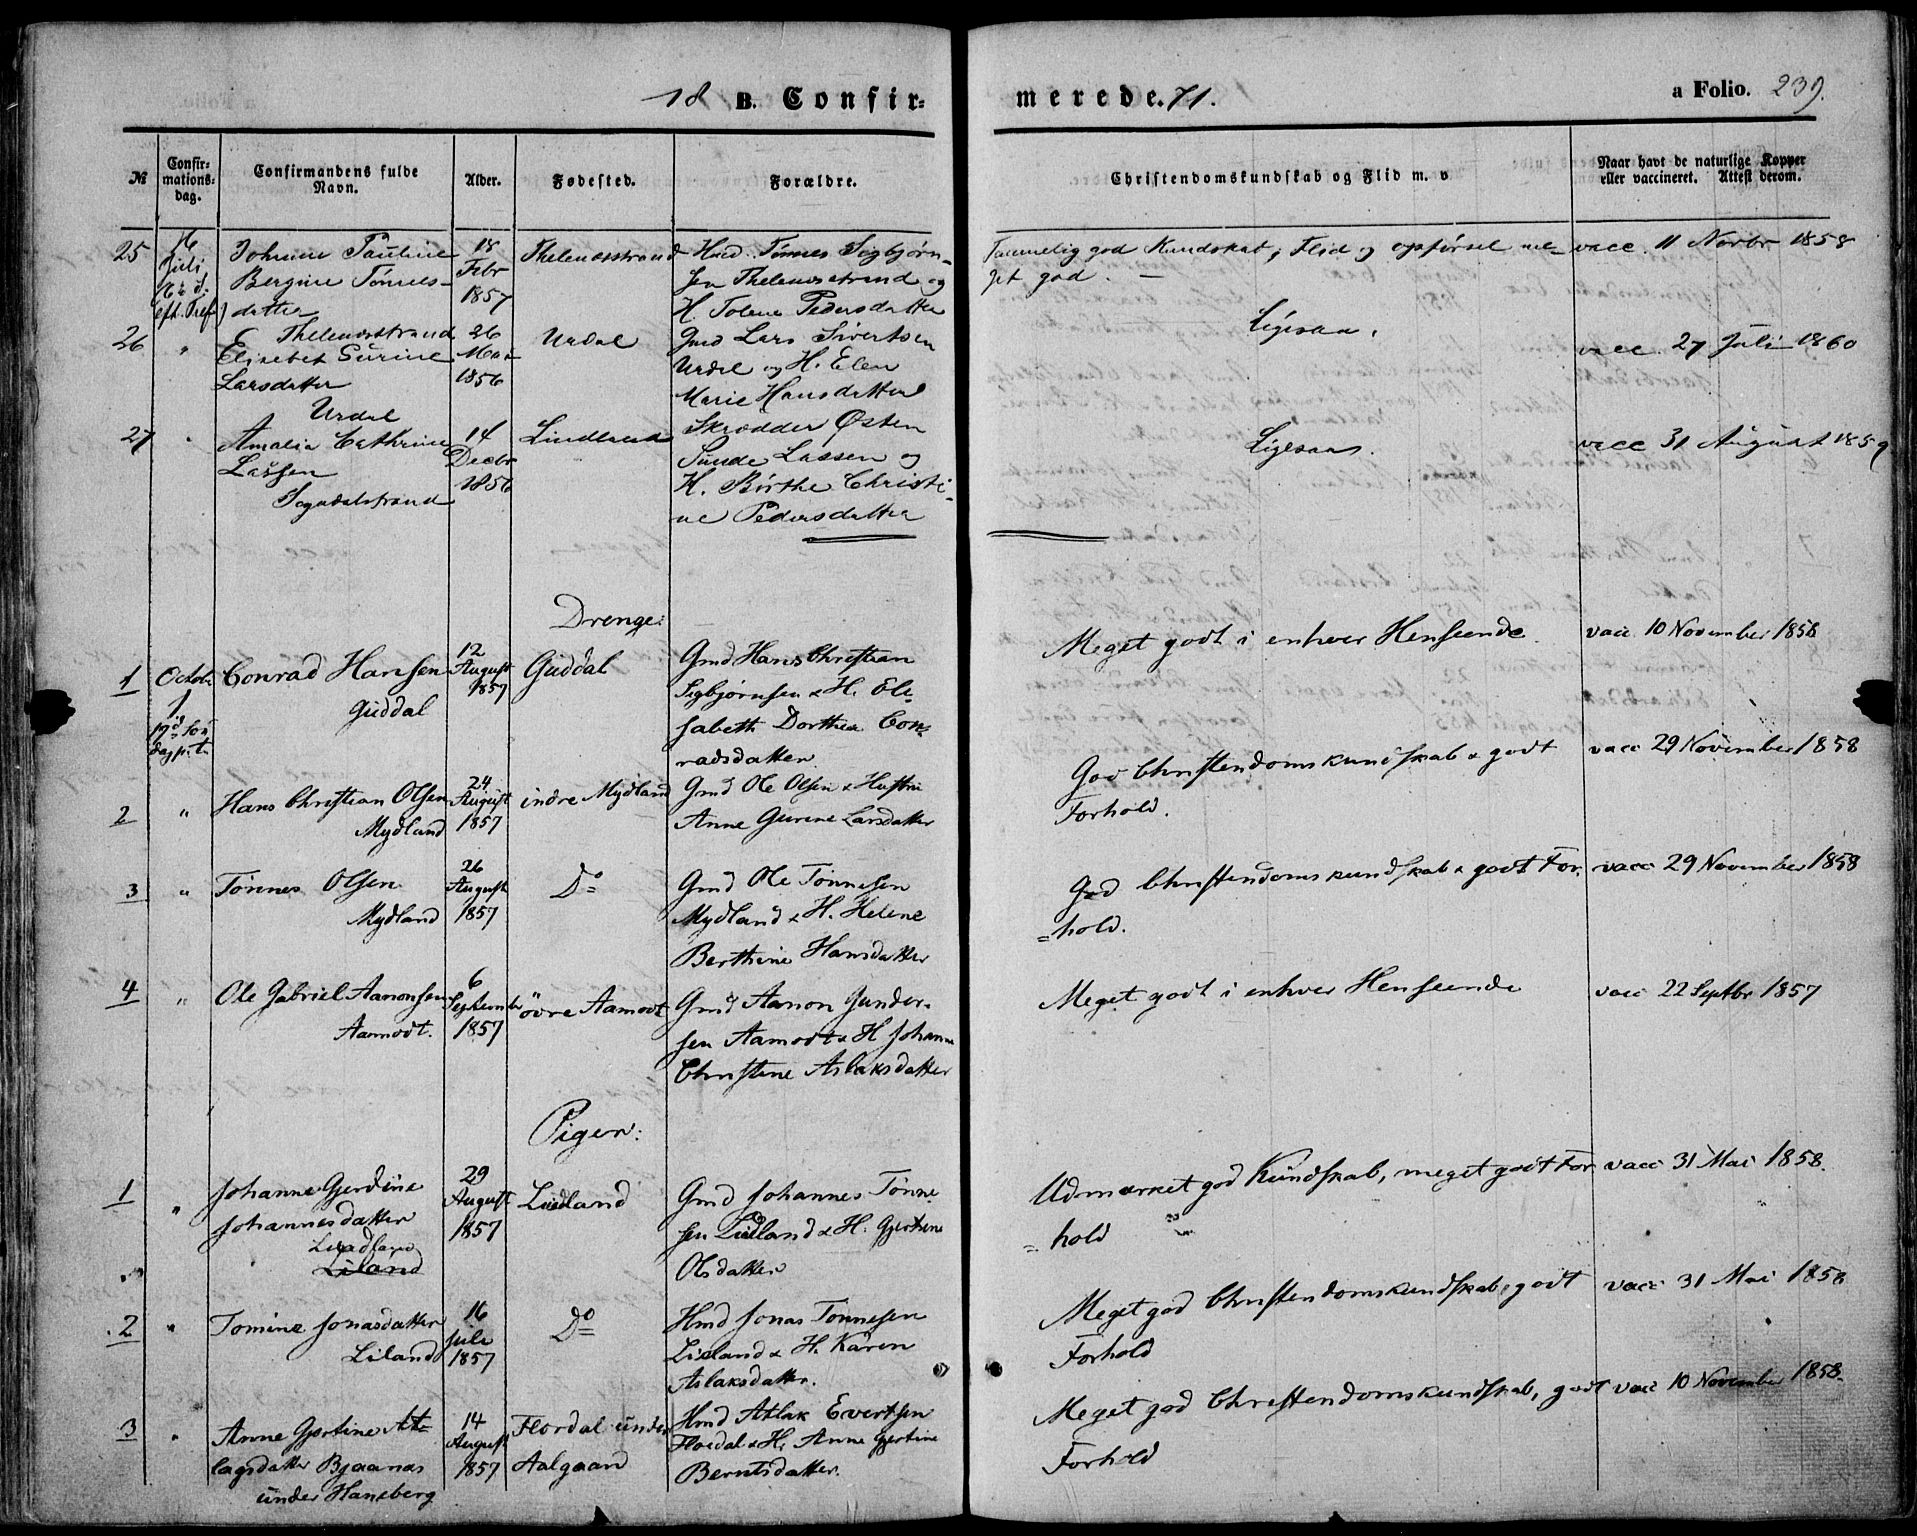 18 B. Confir= merede. 71. a Folio. 239.
№ Confir=mations=dag. Confirmandens fulde Navn. Alder. Fødested. Forældre. Christendomskundskab og Flid m. v Naar havt de naturlige Kopper eller vaccineret. Attest derom.
25 16 Johanne Pauline 18 Thelenesstrand Hmd. Tønnes Sigbjørn- Temmelig god Kundskab, Flid og opførsel me- vacc. 11 Novbr 1858
Juli Bergine Tønnes- Febr sen Thelenesstrand og get god. —
datter 1857 H. Tolene Pedersdatter
Thelenesstrand
26 " Elisebet Surine 26 Urdal Gmd Lars Sivertsen Ligesaa. vacc. 27 Juli 1860
Larsdatter Mai Urdal og H. Elen
Urdal 1856 Marie Hansdatter
27 " Amalia Cathrine 14 Lindland Skrædder Østen Ligesaa. vacc 31 August 1859
Lassen Decbr Sunde Lassen og
Sogndalstrand 1856 H. Birthe Christi-
ne Pedersdatter
Drenge:
1 Octobr Conrad Hansen 12 Guddal Gmd Hans Christian Meget godt i enhver Henseende vacc. 10 November 1858
1 Guddal August Sigbjørnsen & H. Eli-
1857 sabeth Dorthea Con-
radsdatter
2 " Hans Christian Olsen 24 indre Mydland Gmd Ole Olsen & Hustru God Christendomskundskab & godt vacc 29 November 1858
Mydland August Anne Gurine Larsdatter Forhold.
1857
3 " Tønnes Olsen 26 Do Gmd Ole Tønnesen God Christendomskundskab & godt For- vacc 29 November 1858
Mydland August Mydland & H. Helene =hold.
1857 Berthine Hansdatter
4 " Ole Gabriel Aanonsen 6 övre Aamodt Gmd Aanon Gunder- Meget godt i enhver Henseende vacc 22 Septbr 1857
Aamodt. September sen Aamodt & H Johanne
1857 Christine Aslaksdatter
Pigen:
1 " Johanne Gjerdine 29 Liedland Gmd Johannes Tönne- Udmærket god Kundskab, meget godt For vacc 31 Mai 1858.
Johannesdatter August sen Liedland & H. Gjertine =hold
Liedland 1857 Olsdatter
Liland
2 " Tomine Jonasdatter 16 Do Hmd Jonas Tonnesen Meget god Christendomskundskab, godt vacc 31 Mai 1858
Liland Juli Liedland & H. Karen Forhold
1857 Aslaksdatter.
3 " Anne Gjertine At- 14 Flordal under Hmd Atlak Evertsen Meget god Christendomskundskab, godt vacc 10 November 1858.
lagsdatter Bjaanas August Aalgaard Flordal & H. Anne Gjertine Forhold
under Haneberg 1857 Berntsdatter.